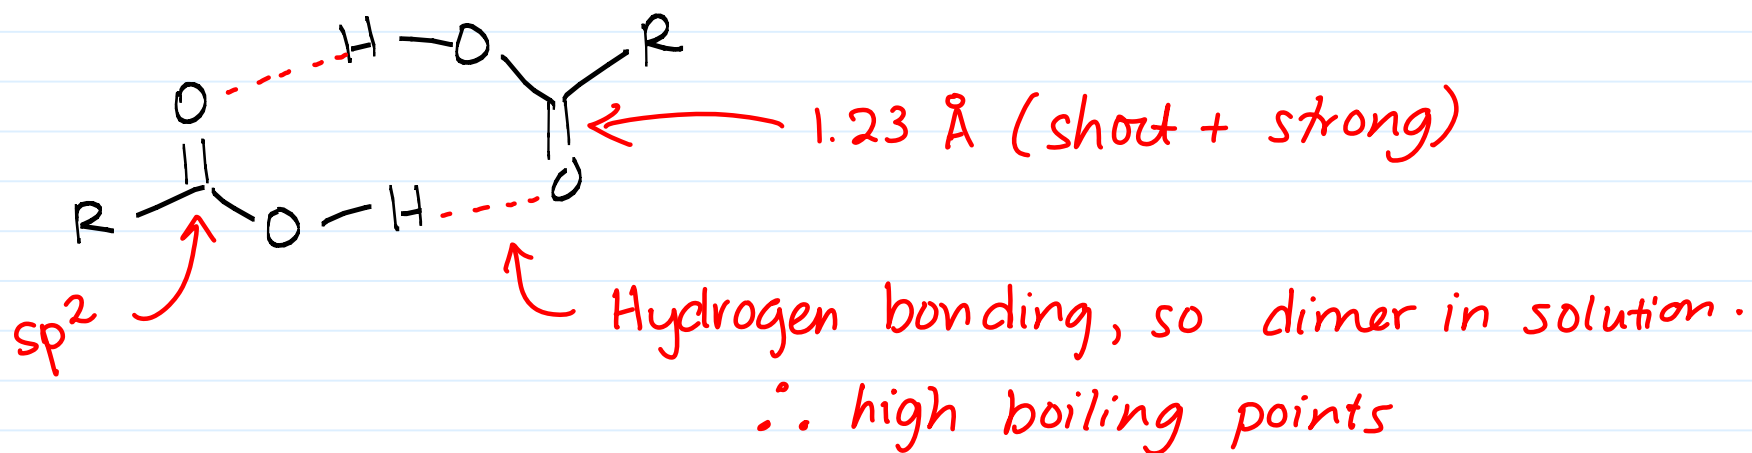 H O R
O
1.23 Å (short + strong)
O
R O H
sp²
Hydrogen bonding, so dimer in solution.
∴ high boiling points